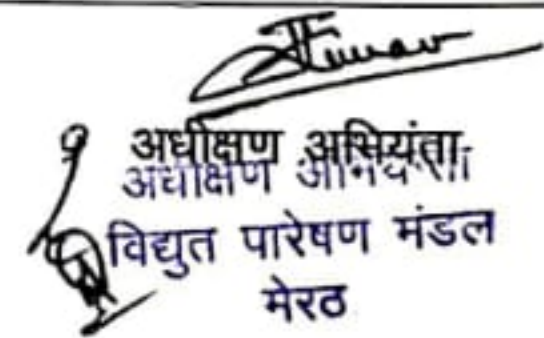 अधीक्षण अभियंता
अधीक्षण अभियंता
विद्युत पारेषण मंडल
मेरठ